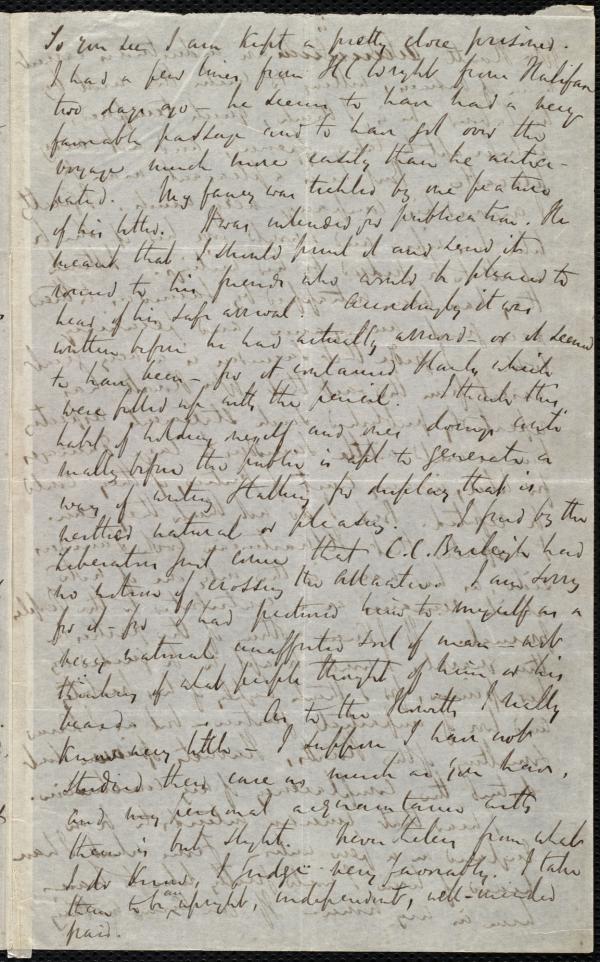 So you see I am kept a pretty close prisoner.
I had a few lines from H C Wright from Halifax
two days ago - he seems to have had a very
favorable passage and to have got over the
voyage much more easily than he antici-
pated. My fancy was tickled by one feature
of his letter. It was intended for publication. He
meant that I should print it and send it
round to his friends who would be pleased to
hear of his safe arrival. Accordingly it was
written before he had actually arrived - or it seemed
to have been - for it contained blanks which
were filled up with the pencil. I think this
habit of holding oneself and ones doings conti-
nually before the public is apt to generate a
way of writing & talking for display that is
neither natural or pleasing. I find by the
Liberator just come that C. C. Burleigh had
no notion of crossing the Atlantic. I am sorry
for it - for I had pictured him to myself as a
very natural unaffected sort of man - not
thinking of what people thought of him or his
beard. As to the Howitts I really
know very little - I suppose I have not
studied their case as much as you have,
and my personal acquaintance with
them is but slight. Nevertheless from what
I do know, I judge very favorably. I take
them to be an upright, independent, well-minded
pair.